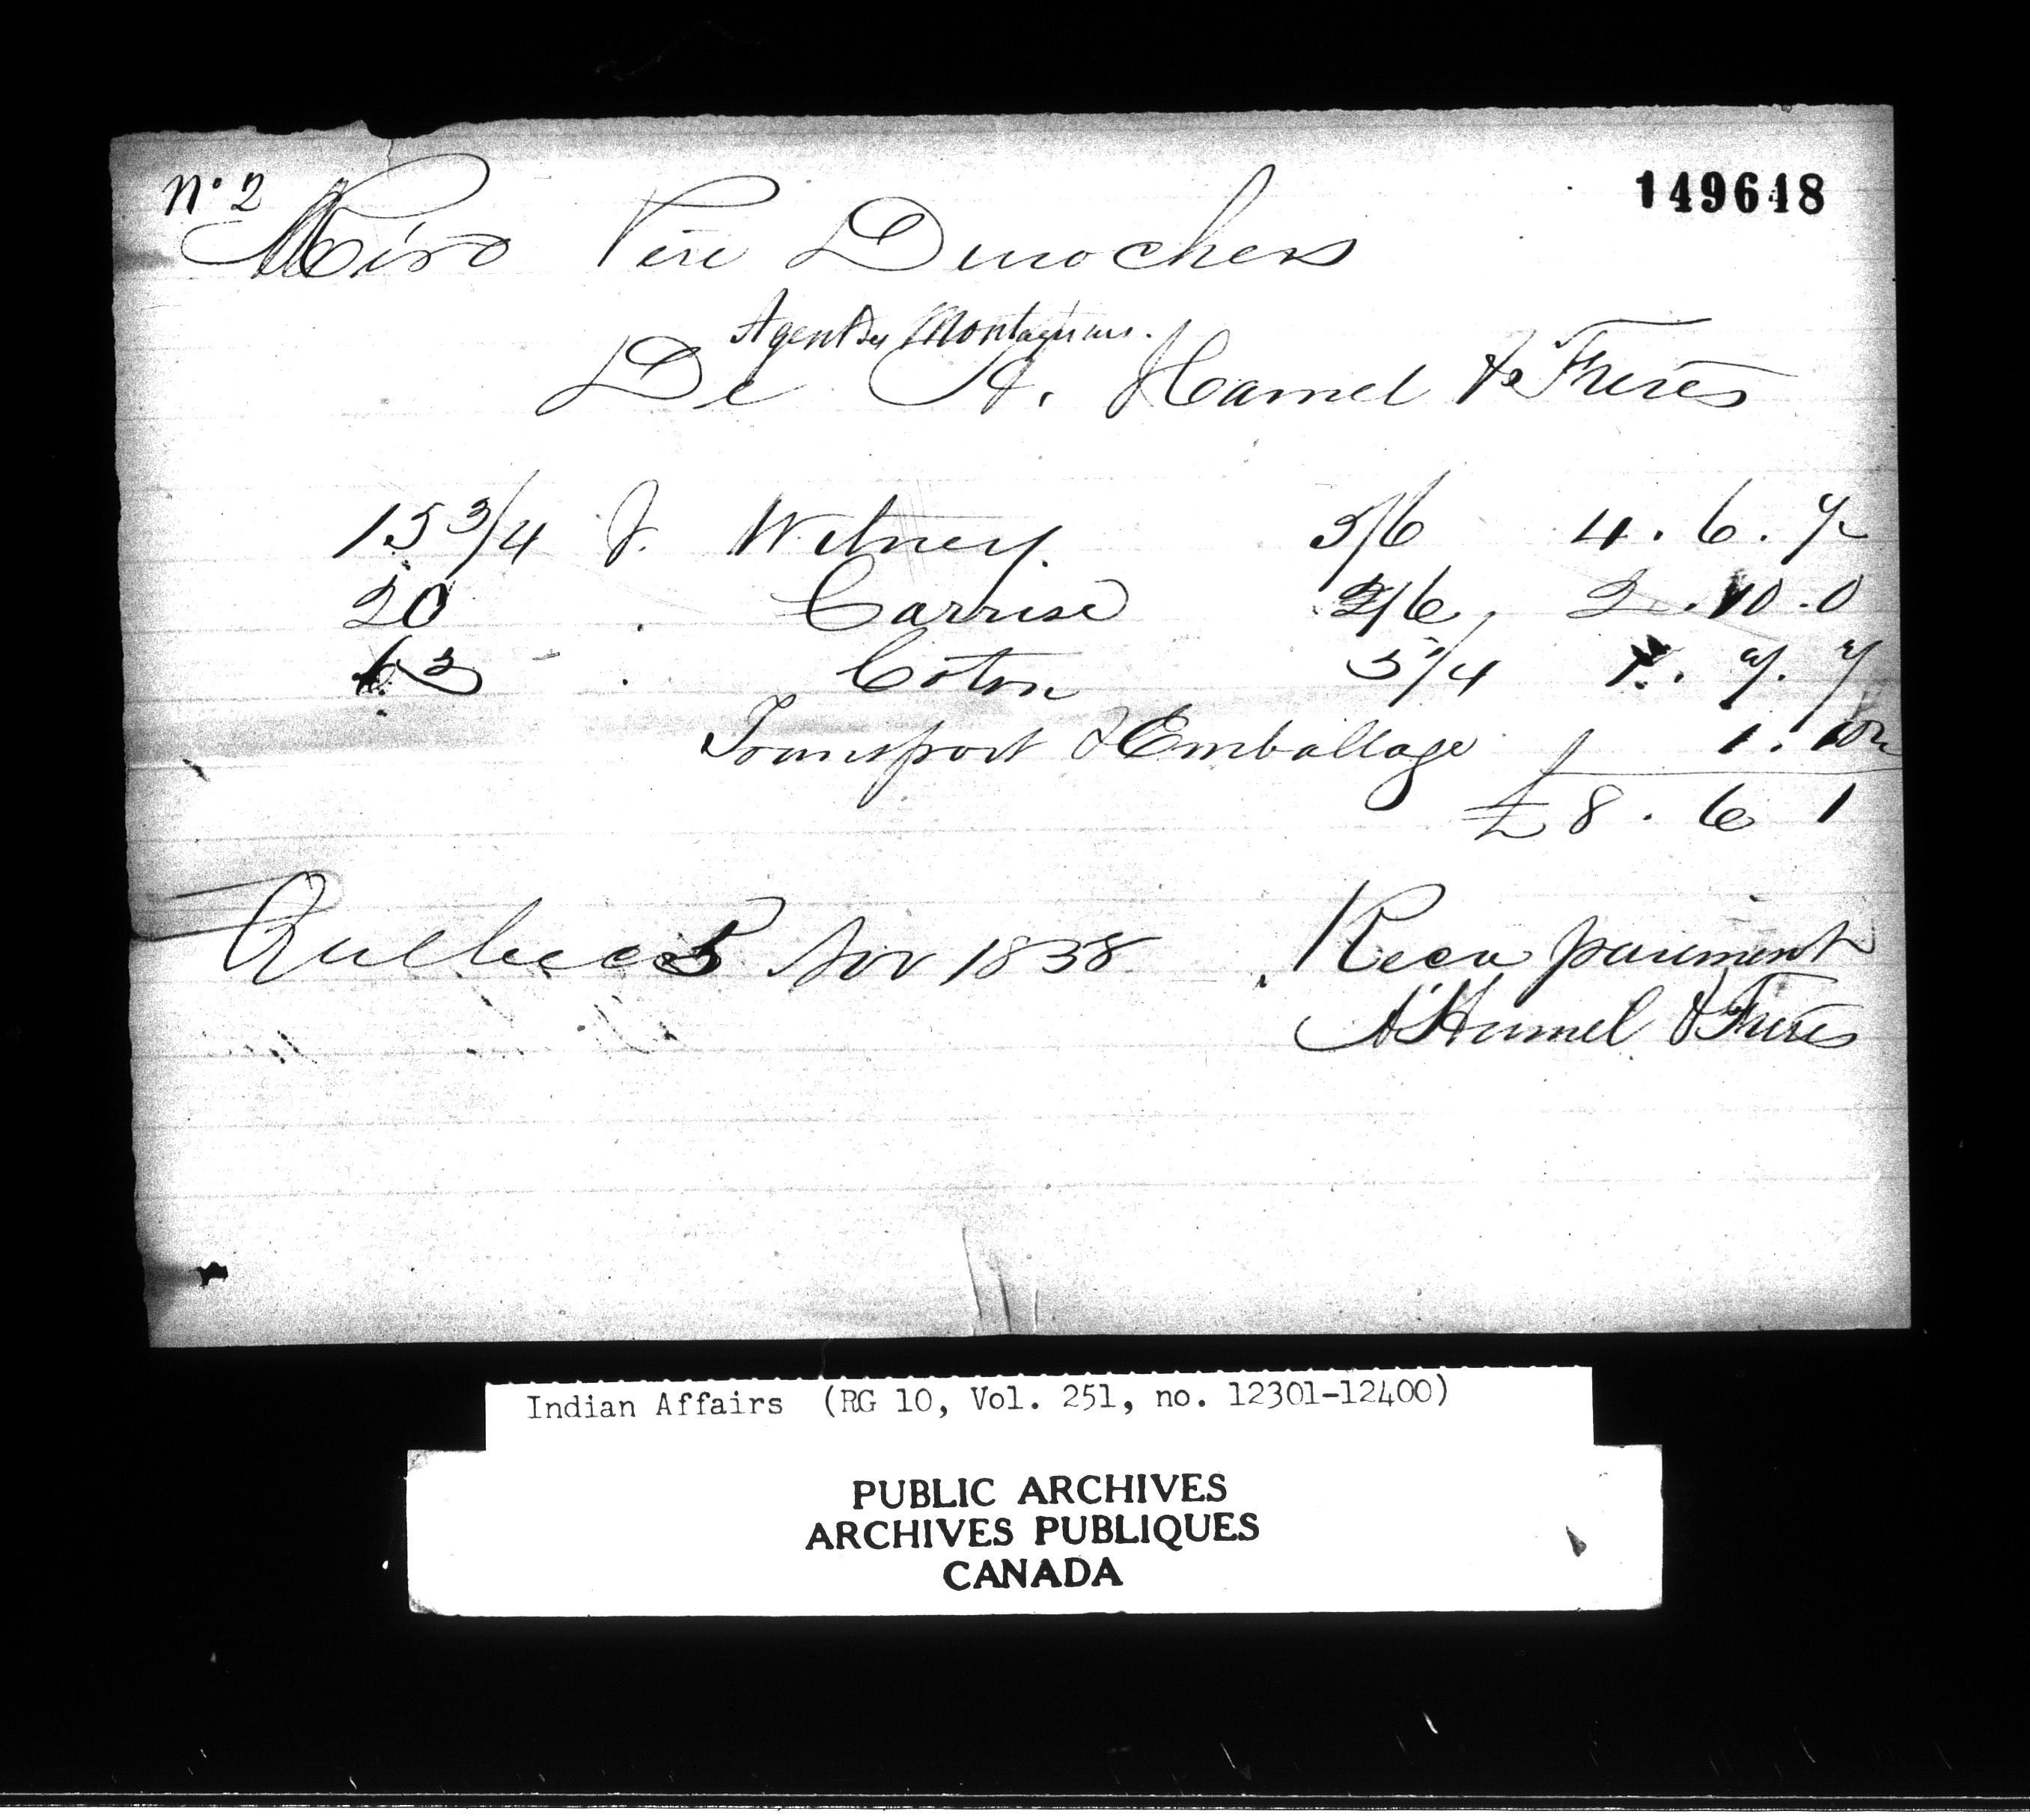 No 2
149618
Révd Père Durocher
Agent des Montagnais.
De A. Hamel & Frères
15 3/4 v. Witney 5/6 4.6.7½
20 . Carrisé 2/6 2.10.0
63 . Coton 5 1/4 1.7.7
Transport & Emballage 1.10½
£ 8.6 1
Québec 5 Nov 1858 Recu paiement
A Hamel & Frères
Indian Affairs (RG 10, Vol. 251, no. 12301-12400)
PUBLIC ARCHIVES
ARCHIVES PUBLIQUES
CANADA